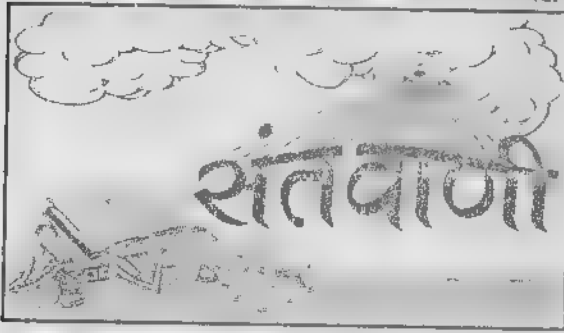 संतवाणी